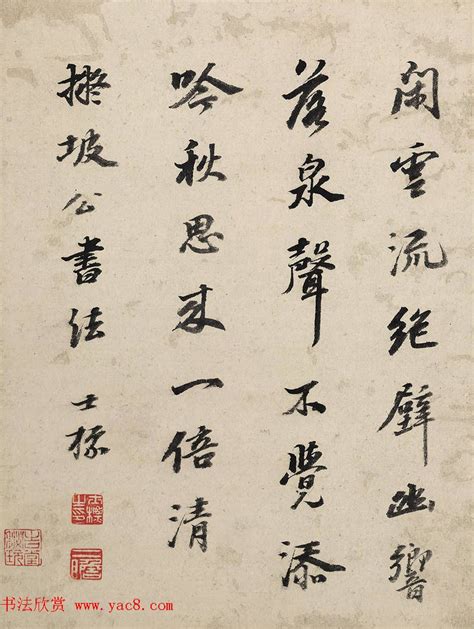 閑雲流絕壁幽響
落泉聲不覺添
吟秋思來一倍清
擬坡公書法 士標
书法欣赏 www.yac8.com